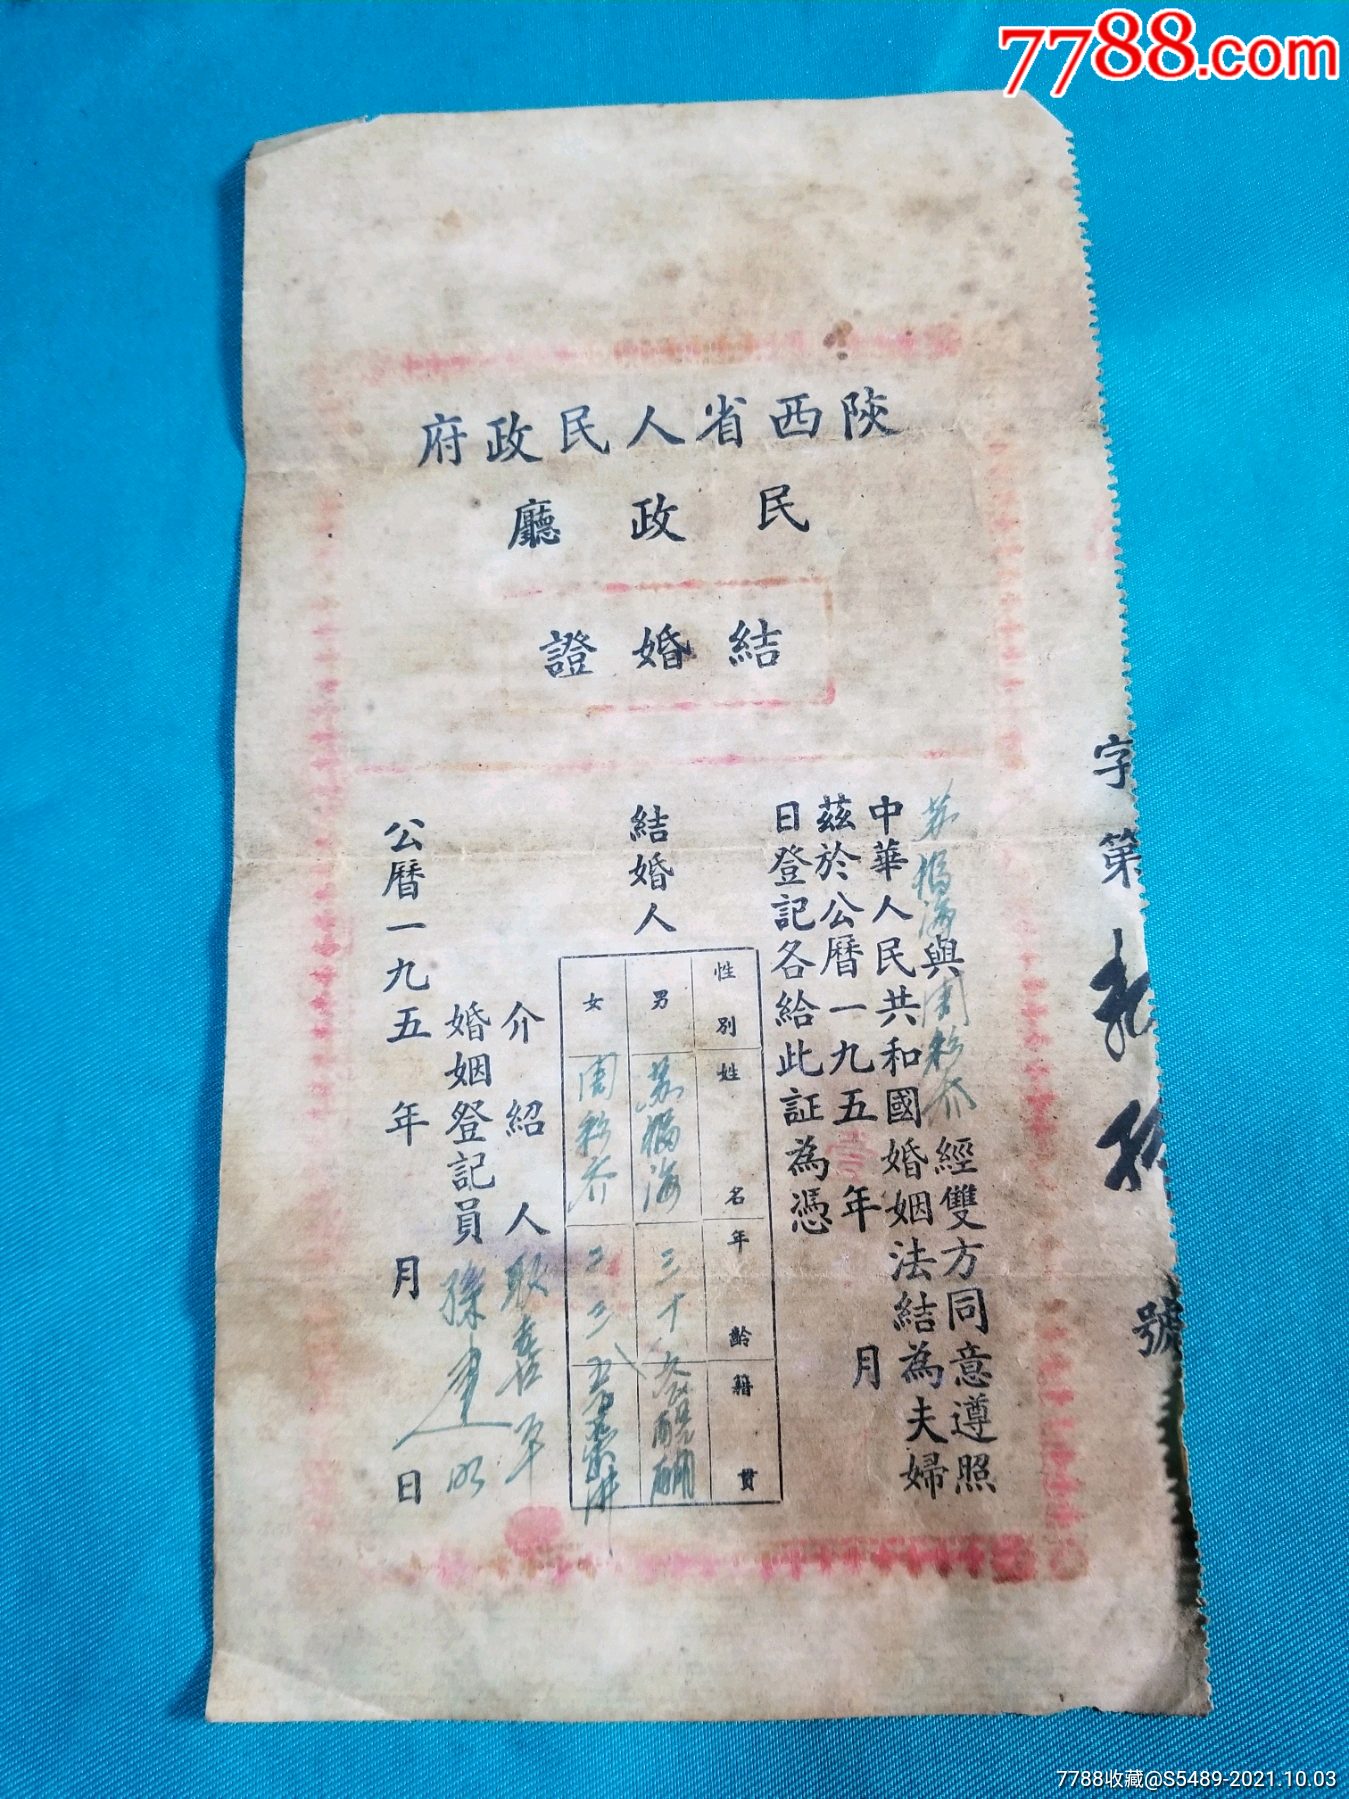 7788.com
陝西省人民政府
民政廳
結婚證
字第 號
與周 經雙方同意遵照
中華人民共和國婚姻法結為夫婦
茲於公曆一九五 年 月
日登記各給此証為憑
結婚人
性別 姓名 年齡 籍貫
男 海 三十
女 周
介紹人
婚姻登記員 孫建
公曆一九五 年 月 日
7788收藏@S5489-2021.10.03